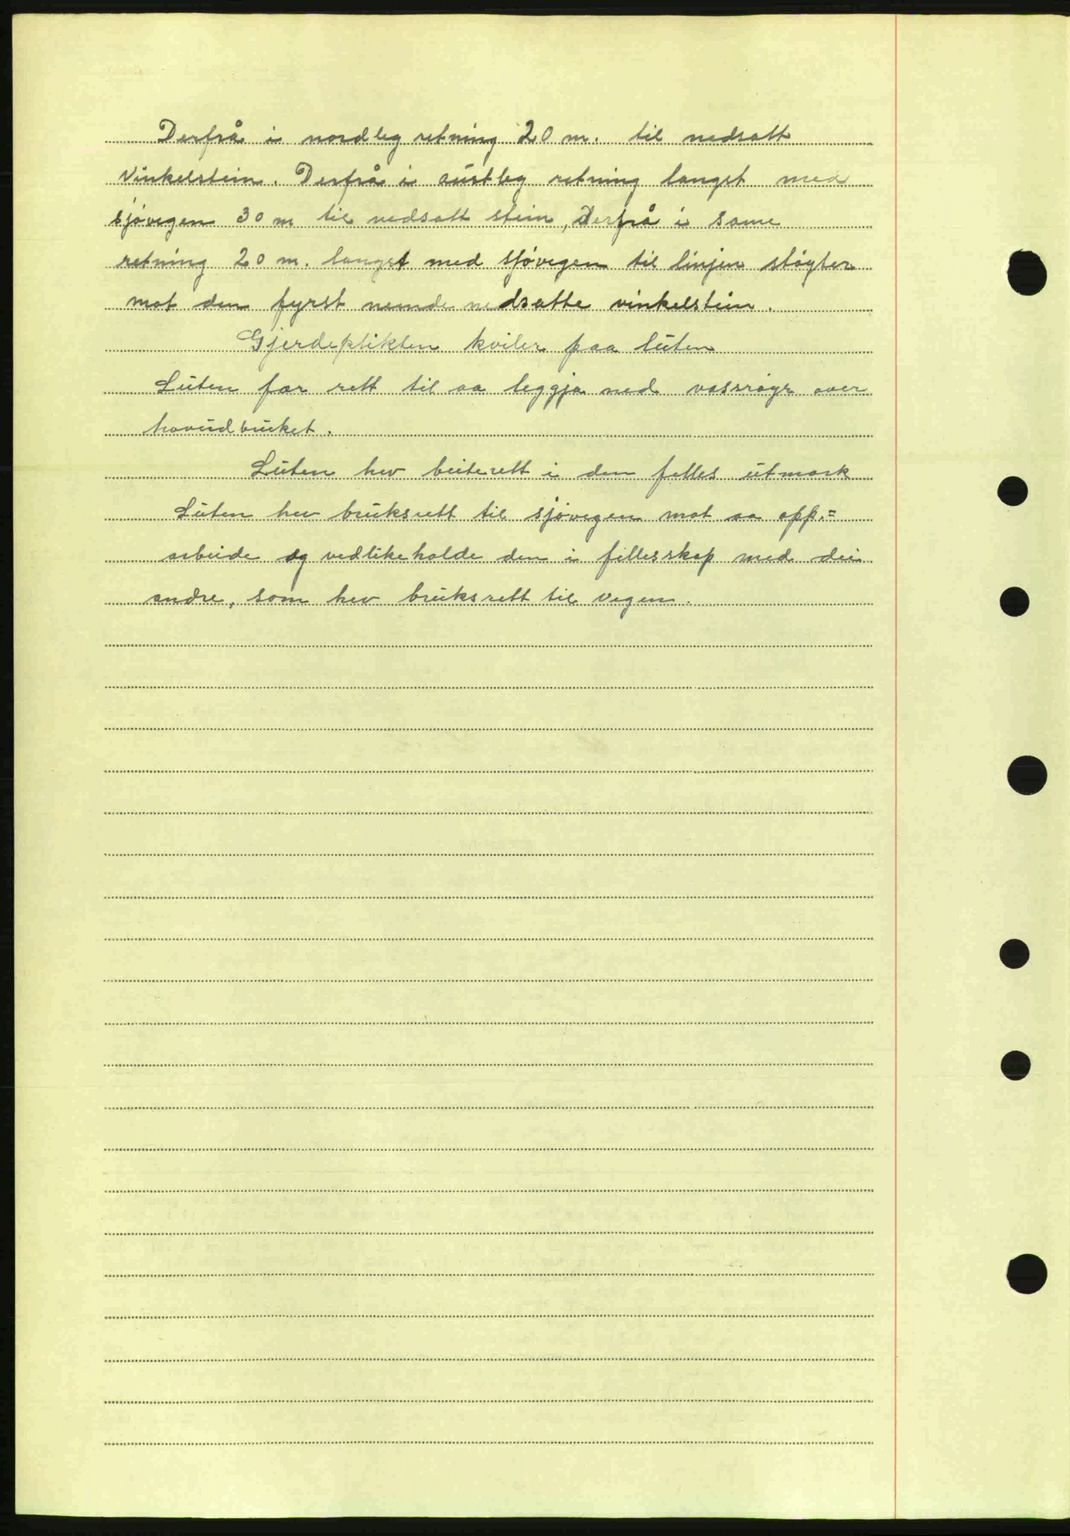 Derfrå i nordleg retning 20 m. til nedsatt
vinkelstein. Derfrå i austleg retning langst med
sjøvegen 30 m til nedsatt stein, Derfrå i same
retning 20 m. langst med sjøvegen til linjen støyter
mot den fyrst nemde nedsatte vinkelstein.
Gjerdeplikten kviler paa luten
Luten far rett til aa leggja ned vassrøyr over
hovudbruket.
Luten hev beiterett i den felles utmark
Luten hev bruksrett til sjøvegen mot aa opp.=
arbeide og vedlikeholde den i fellesskap med dei
andre, som hev bruksrett til vegen.